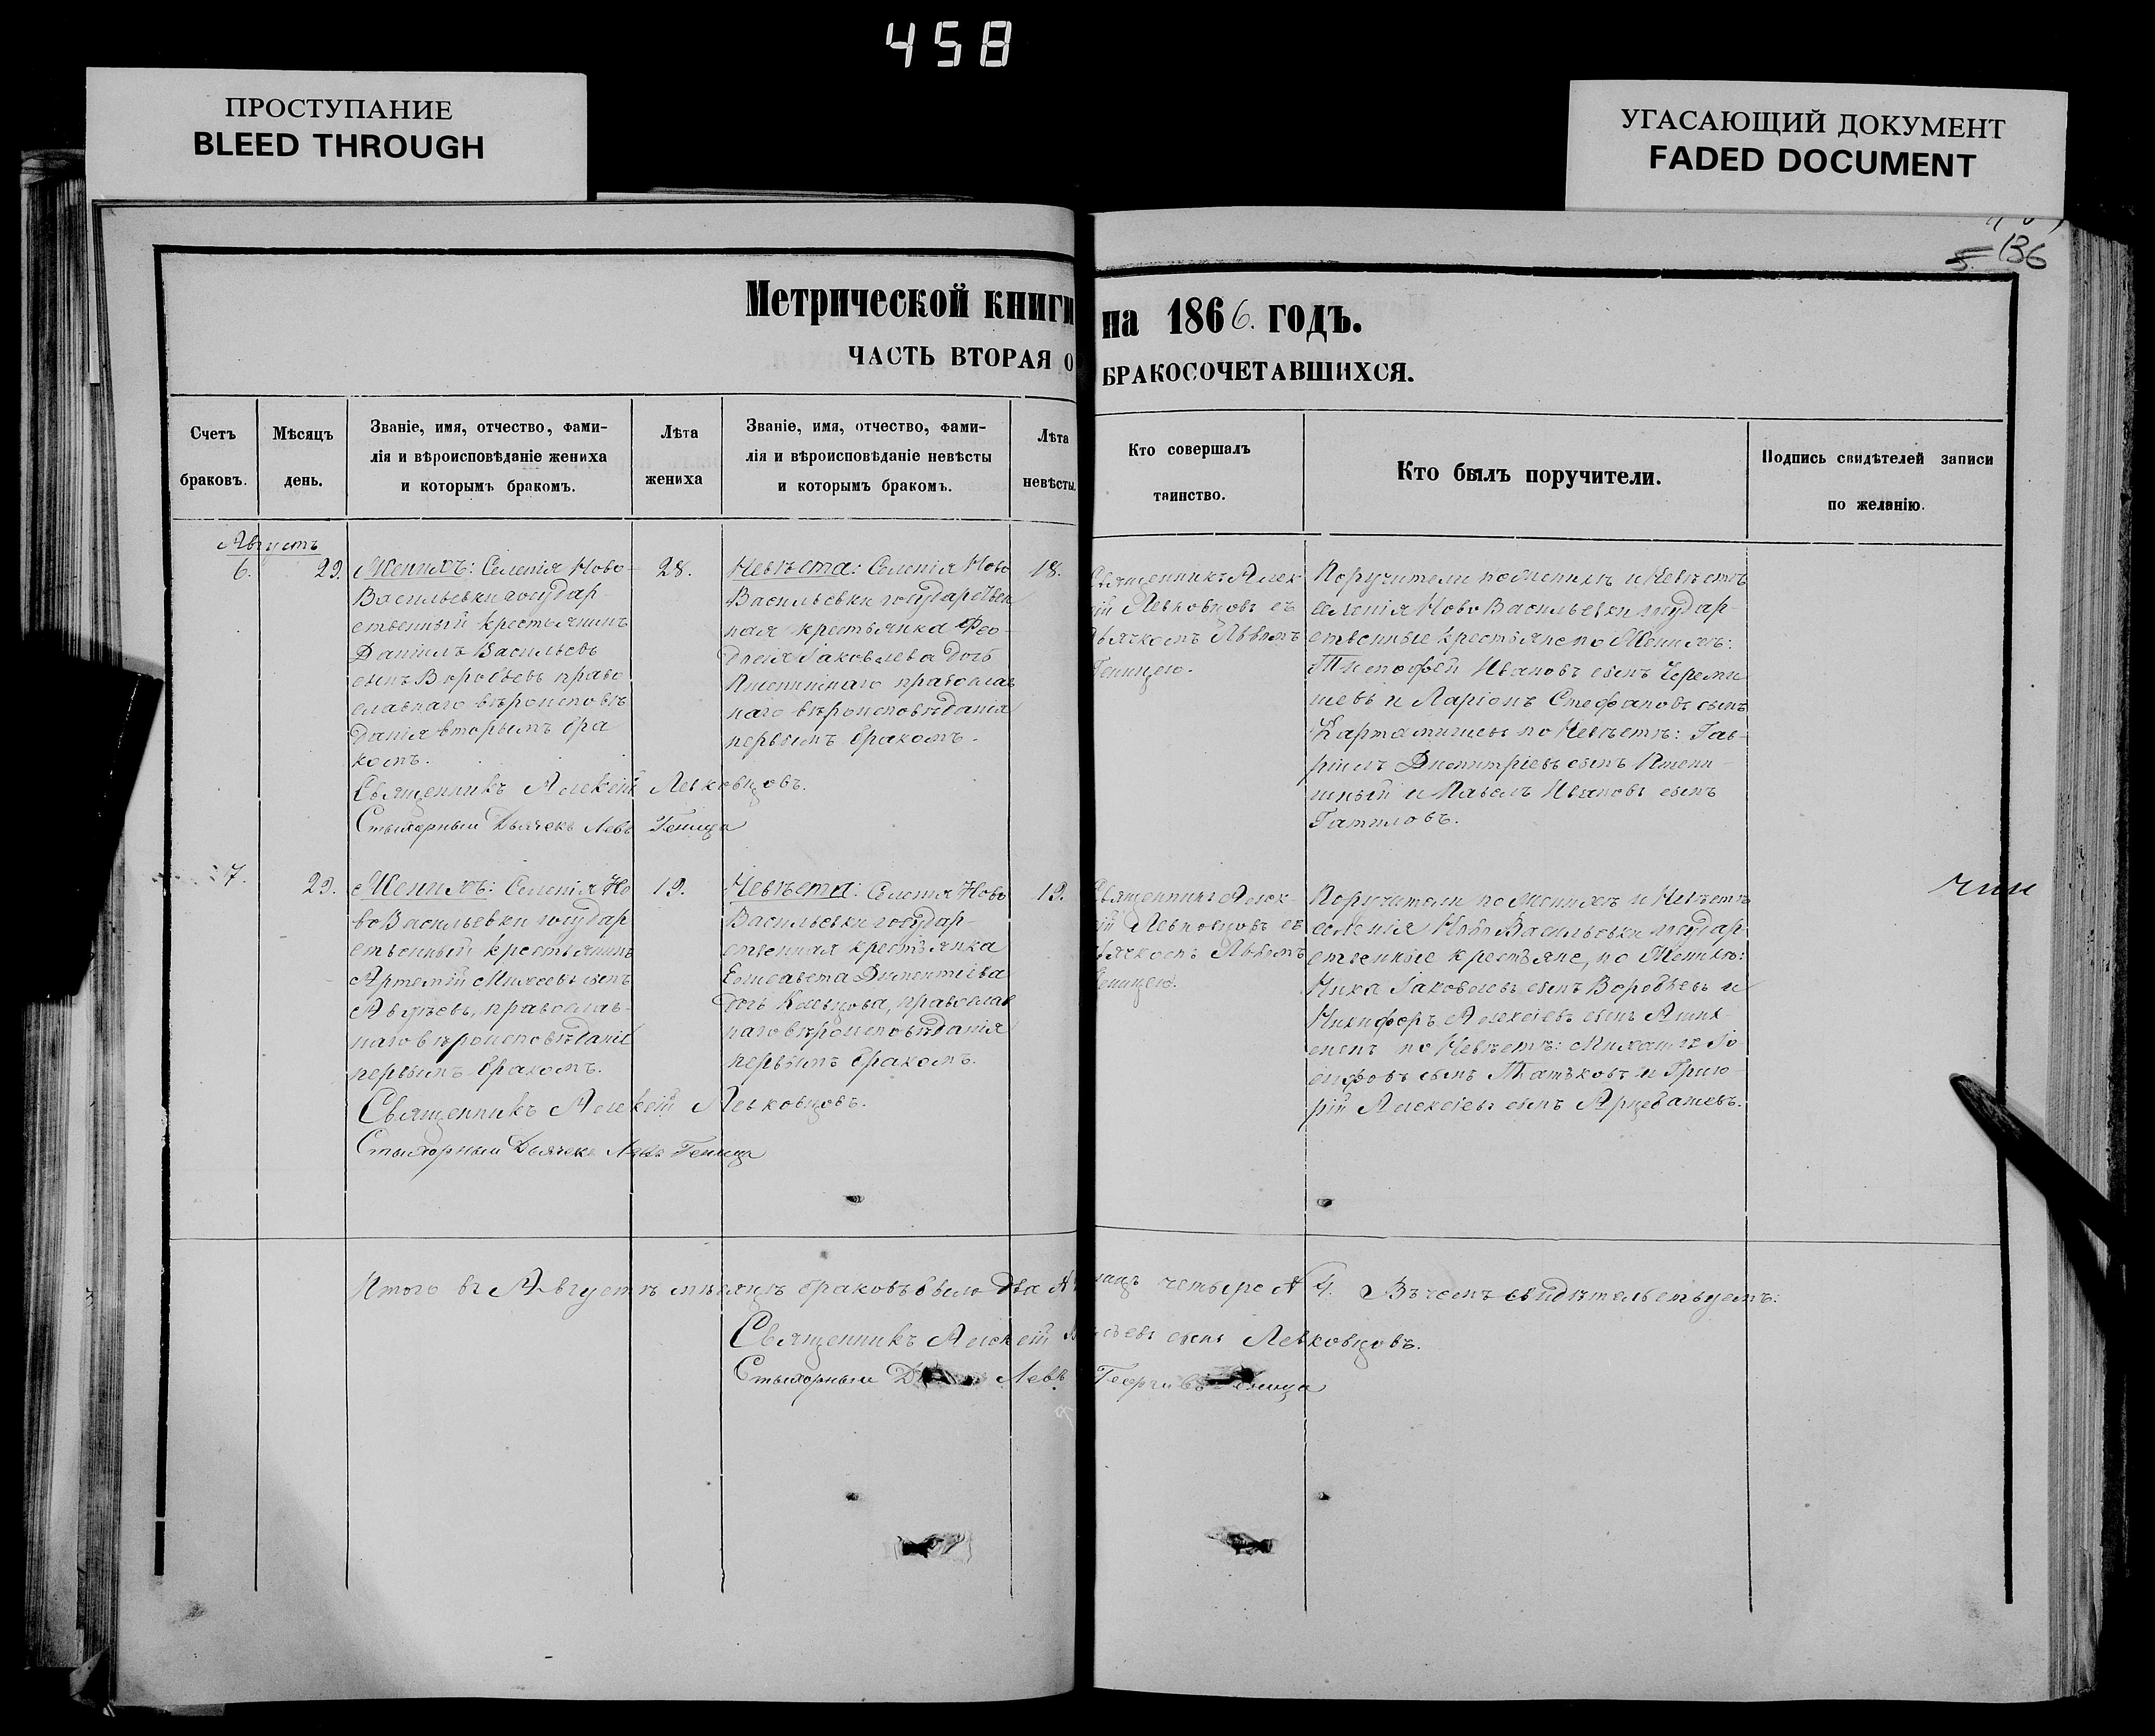 458
ПРОСТУПАНИЕ
BLEED THROUGH
УГАСАЮЩИЙ ДОКУМЕНТ
FADED DOCUMENT
136
Метрической книги на 1866. годъ.
ЧАСТЬ ВТОРАЯ О БРАКОСОЧЕТАВШИХСЯ.
Счетъ
браковъ.
Мѣсяцъ
день.
Званіе, имя, отчество, фами-
лія и вѣроисповѣданіе жениха
и которымъ бракомъ.
Лѣта
жениха
Званіе, имя, отчество, фами-
лія и вѣроисповѣданіе невѣсты
и которымъ бракомъ.
Лѣта
невѣсты.
Кто совершалъ
таинство.
Кто былъ поручители.
Подпись свидѣтелей записи
по желанію.
Августъ
6.
29.
Женихъ: Селенія Ново-
Васильевки государ
ственный крестьянинъ
Даніилъ Васильевъ
сынъ Воробьевъ право
славнаго вѣроисповѣ
данія вторымъ бра
комъ.
28.
Невѣста: Селенія Ново
Васильевки государствен
ная крестьянка Фео-
досія Іаковлева дочь
Пшенишнаго православ
наго вѣроисповѣданія
первымъ бракомъ.
18.
Священникъ Алек
сій Левковцовъ съ
дьячкомъ Львомъ
Геницею.
Поручители по Женихѣ и Невѣстѣ
селенія Ново Васильевки государ-
ственные крестьяне по Женихѣ:
Тимофей Ивановъ сынъ Череми
шевъ и Ларіонъ Стефановъ сынъ
Картамишевъ по Невѣстѣ: Гав-
ріилъ Димитріевъ сынъ Пшени-
шный и Павелъ Ивановъ сынъ
Священникъ Алексій Левковцовъ.
Стихарный Дьячекъ Левъ Геница
7.
29.
Женихъ: Селенія Но
во Васильевки государ
ственный крестьянинъ
Артемій Михеевъ сынъ
православ-
наго вѣроисповѣданія
первымъ бракомъ.
19.
Невѣста: Селенія Ново
Васильевки государ-
ственная крестьянка
Елисавета Дементіева
дочь Кольцова, православ
наго вѣроисповѣданія
первымъ бракомъ.
19.
Священникъ Алек-
сій Левковцовъ съ
дьячкомъ Львомъ
Геницею.
Поручители по Женихѣ и Невѣстѣ
селенія Ново Васильевки государ
ственные крестьяне, по Женихѣ:
Ника Іаковлевъ сынъ Воробьевъ и
Никифоръ Алексіевъ сынъ
по Невѣстѣ: Михаилъ Іо
сифовъ сынъ Татьковъ и Григо-
рій Алексіевъ сынъ
Священникъ Алексій Левковцовъ.
Стихарный Дьячекъ Левъ Геница
Итого въ Августѣ мѣсяцѣ браковъ было два четыре № 4. Въ чемъ свидѣтельствуемъ:
Священникъ Алексій сынъ Левковцовъ.
Стихарный Левъ Георгіевъ Геница